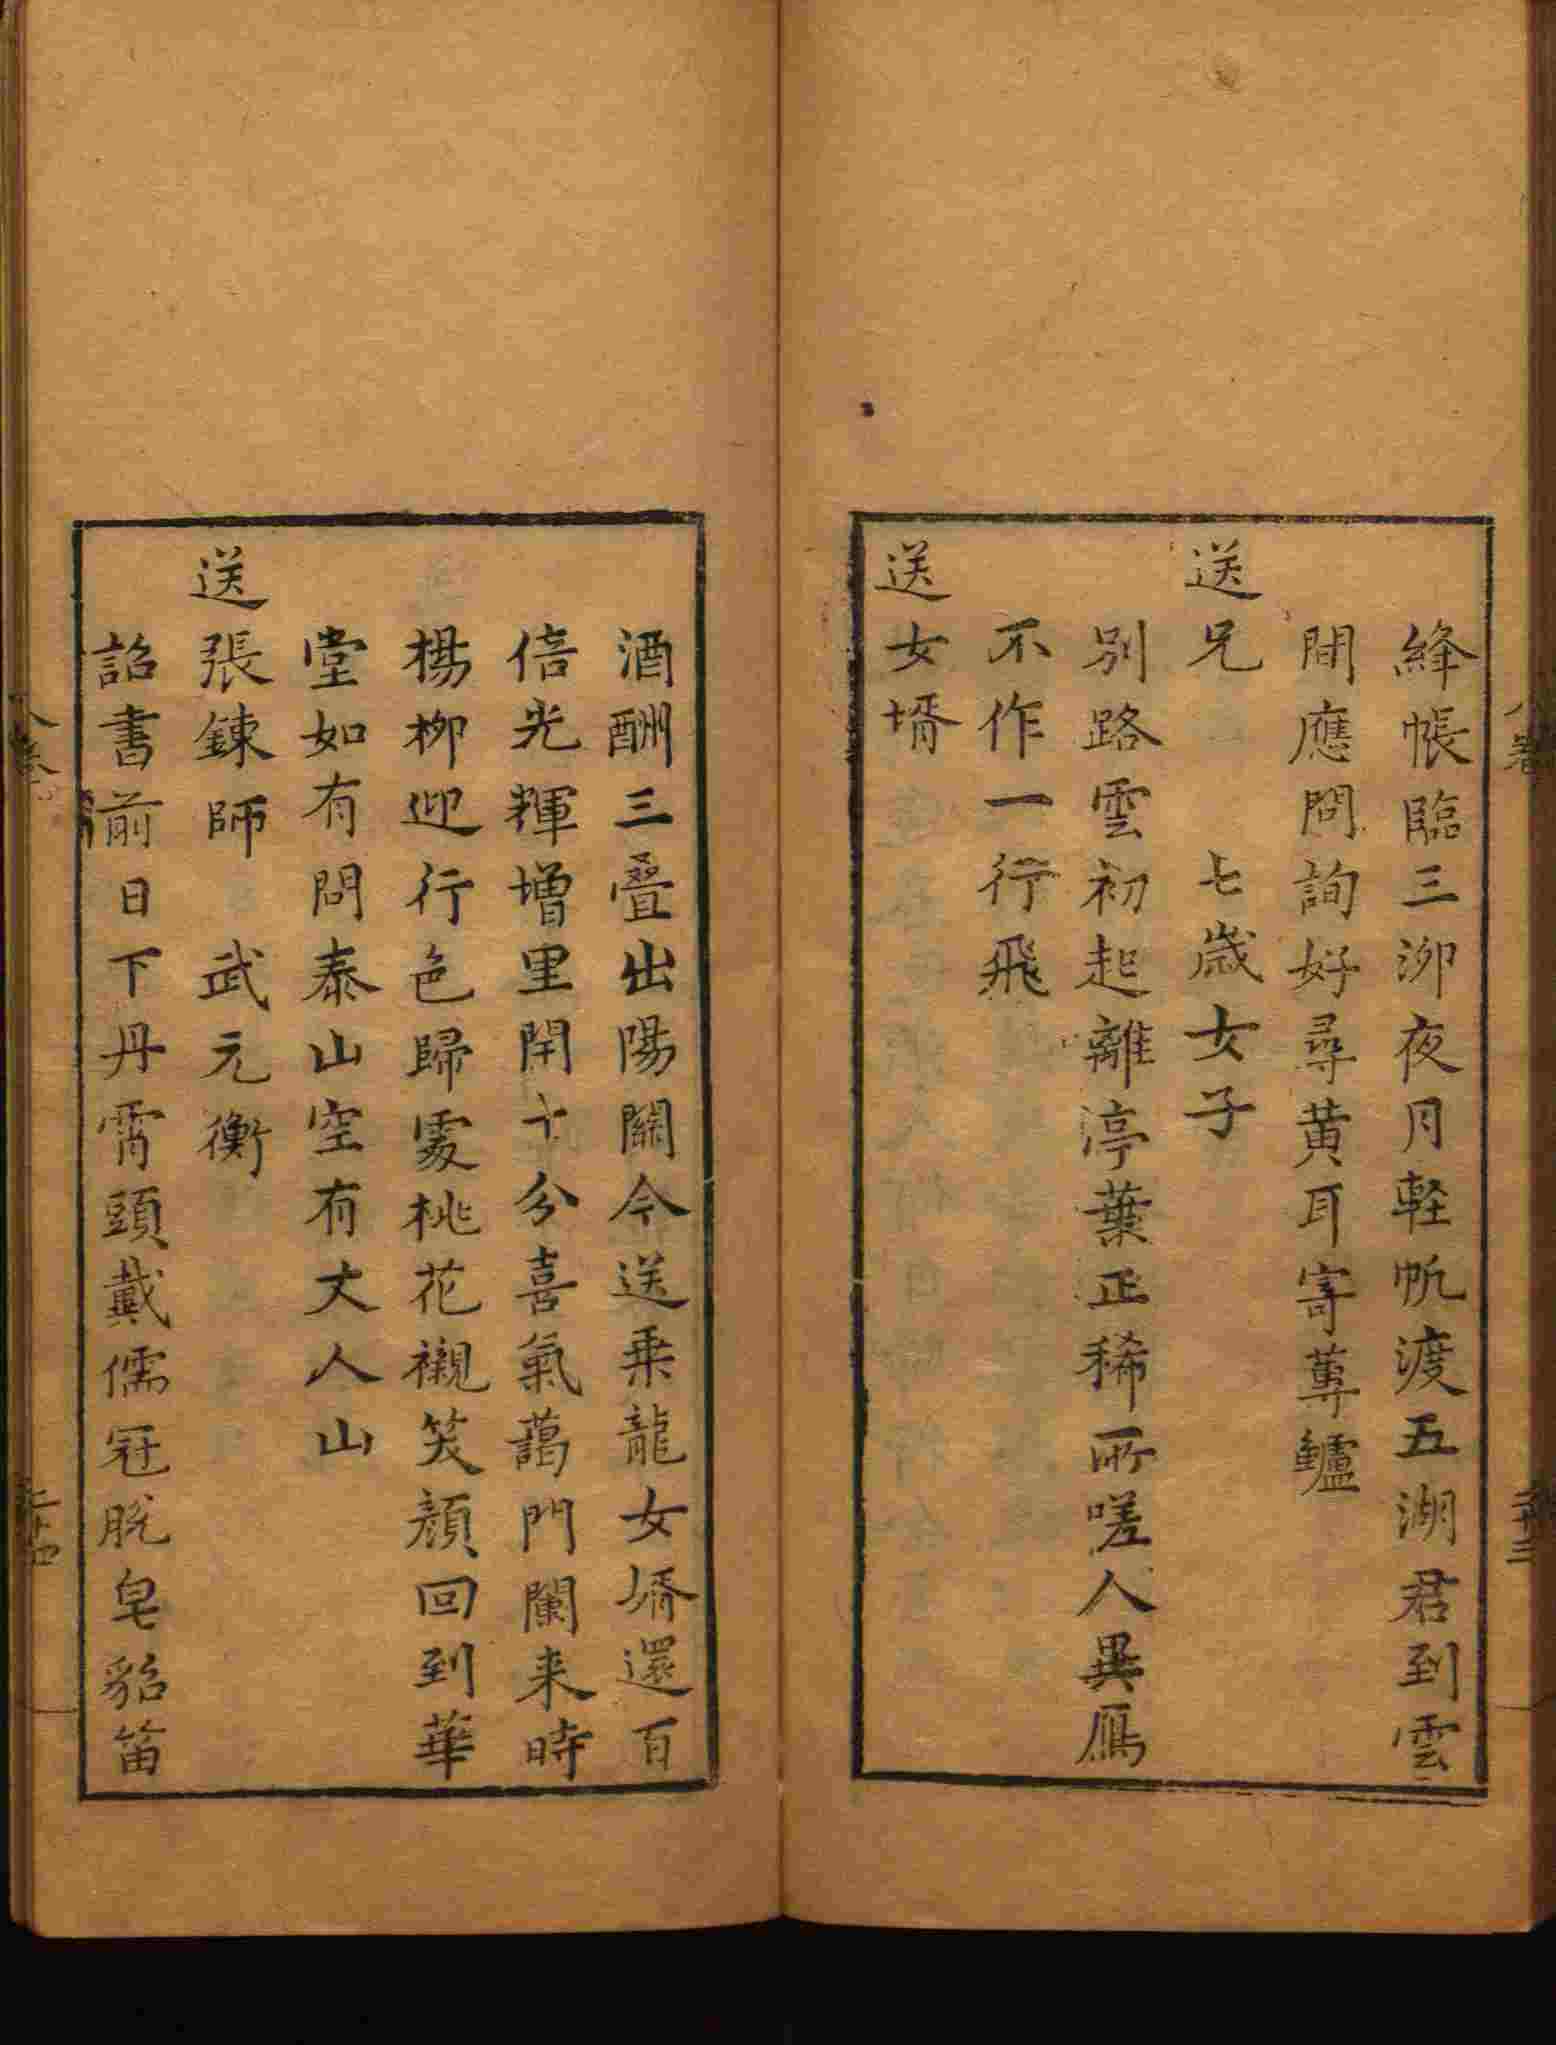 絳帳臨三泖夜月軽帆渡五湖君到雲
間應問詢好尋黄耳寄蓴鱸
送兄　七歳女子
別路雲初起離亭葉正稀所嗟人異鴈
不作一行飛
送女壻
酒酬三疊出陽關今送乗龍女壻還百
倍光輝增里閈十分喜氣藹門闌来時
楊柳迎行色歸處桃花襯笑顔回到華
堂如有問泰山空有丈人山
送張錬師　武元衡
詔書前日下丹霄頭戴儒冠脱皂貂笛